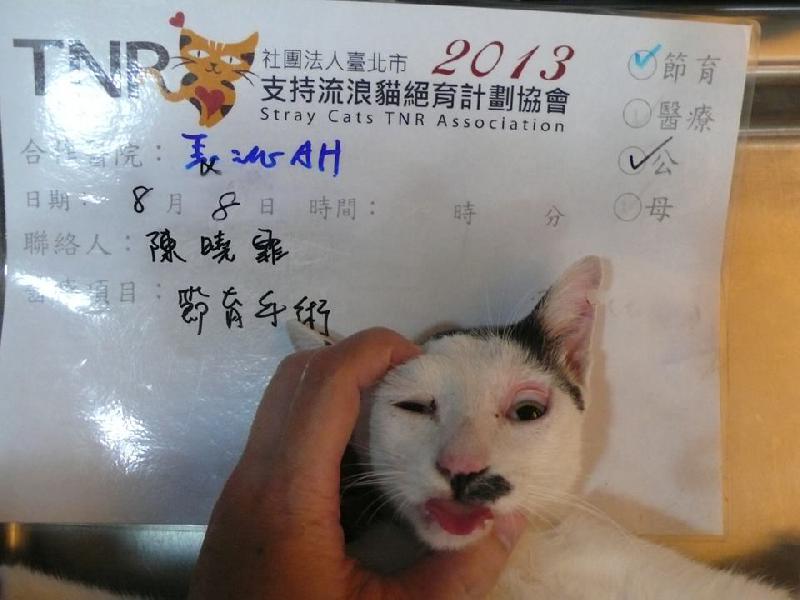 TNR 社團法人臺北市 2013
支持流浪貓絕育計劃協會
Stray Cats TNR Association
節育
醫療
公
母
合作醫院: AH
日期: 8月8日 時間: 時 分
聯絡人: 陳曉霏
醫療項目: 節育手術